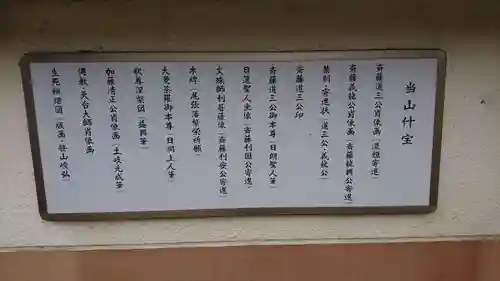 当山什宝
斉藤道三公肖像画(道三公寄進)
斉藤義龍公肖像画(斉藤龍興公寄進)
禁制・寄進状(道三公・義龍公)
斉藤道三公印
斉藤道三公御本尊(日朗聖人筆)
日蓮聖人坐像(斉藤利国公寄進)
文珠師利菩薩像(斉藤利安公寄進)
木碑(尾張藩繁栄祈願)
大曼荼羅御本尊(日朗上人筆)
釈尊涅槃図(益興筆)
加藤清正公肖像画(土岐元成筆)
伝教・天台大師肖像画
生死輪廻図(版画)(笹山岐弘)